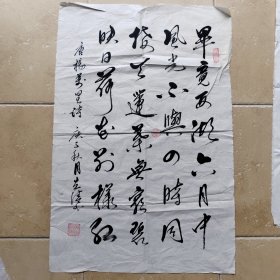 畢竟西湖六月中
風光不與四時同
接天蓮葉無窮碧
映日荷花別樣紅
唐楊萬里詩 庚子秋月